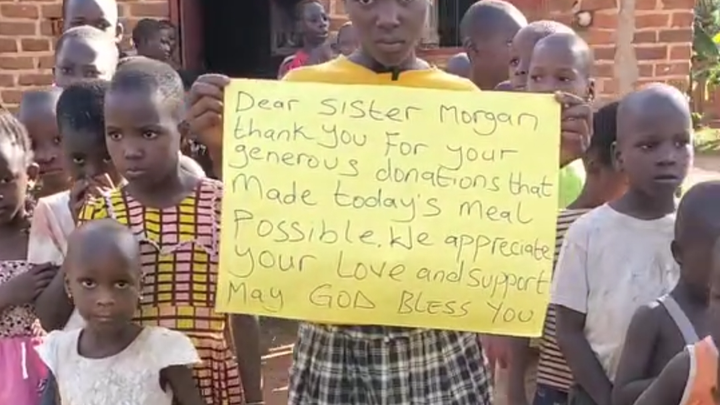 Dear SISTER Morgan
thank you For your
generous donations that
Made today's Meal
Possible. We appreciate
your Love and support
May GOD BLESS YOU